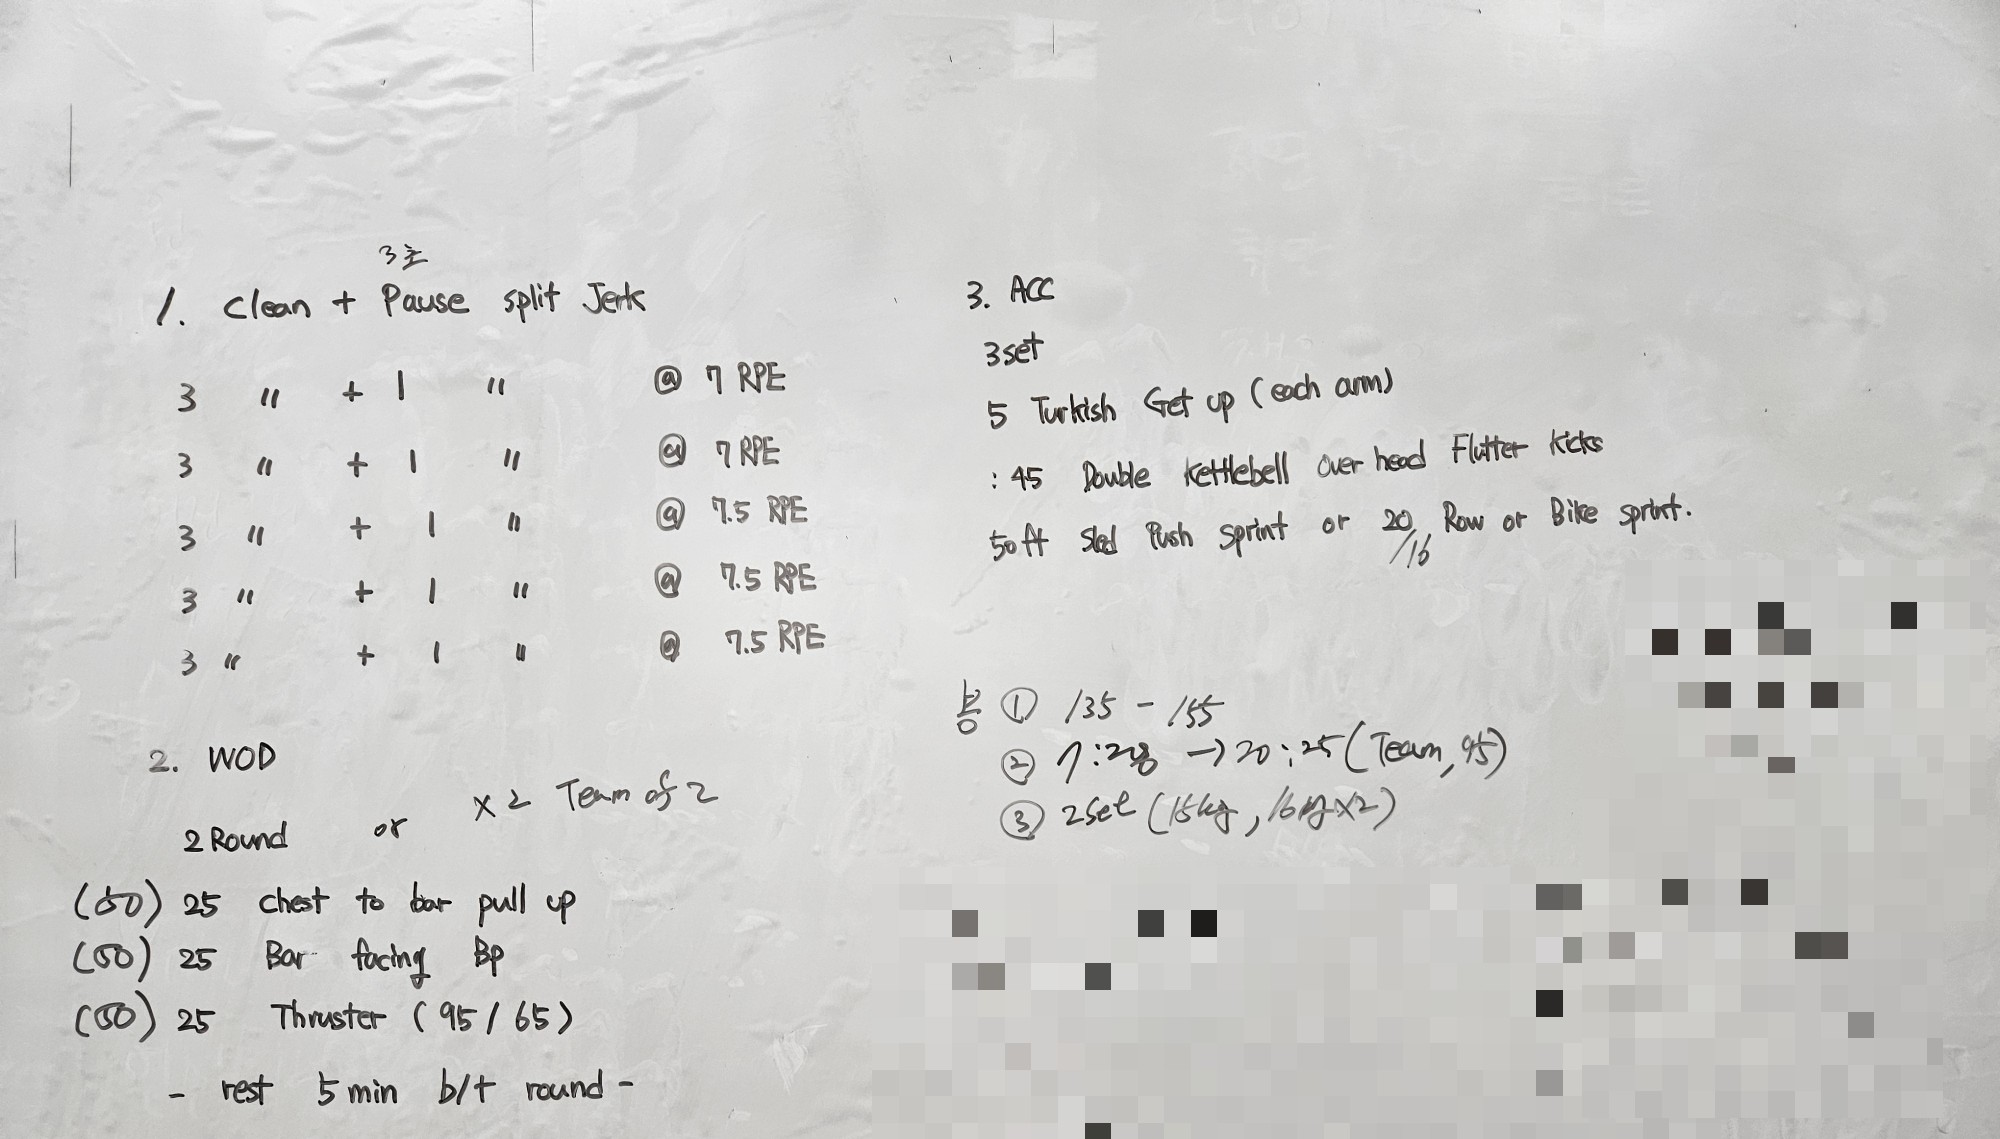 3초
1. Clean + Pause split Jerk
3 " + 1 " @ 7 RPE
3 " + 1 " @ 7 RPE
3 " + 1 " @ 7.5 RPE
3 " + 1 " @ 7.5 RPE
3 " + 1 " @ 7.5 RPE
2. WOD
2 Round or x2 Team of 2
(50) 25 chest to bar pull up
(50) 25 Bar facing Bp
(50) 25 Thruster (95/65)
- rest 5 min b/t round -
3. ACC
3set
5 Turkish Get up (each arm)
:45 Double Kettlebell over head Flutter kicks
50ft Sled Push Sprint or 20/16 Row or Bike sprint.
봉 ① 135 - 155
② 7:28 → 20:25 (Team, 95)
③ 2set (15kg, 16kgx2)